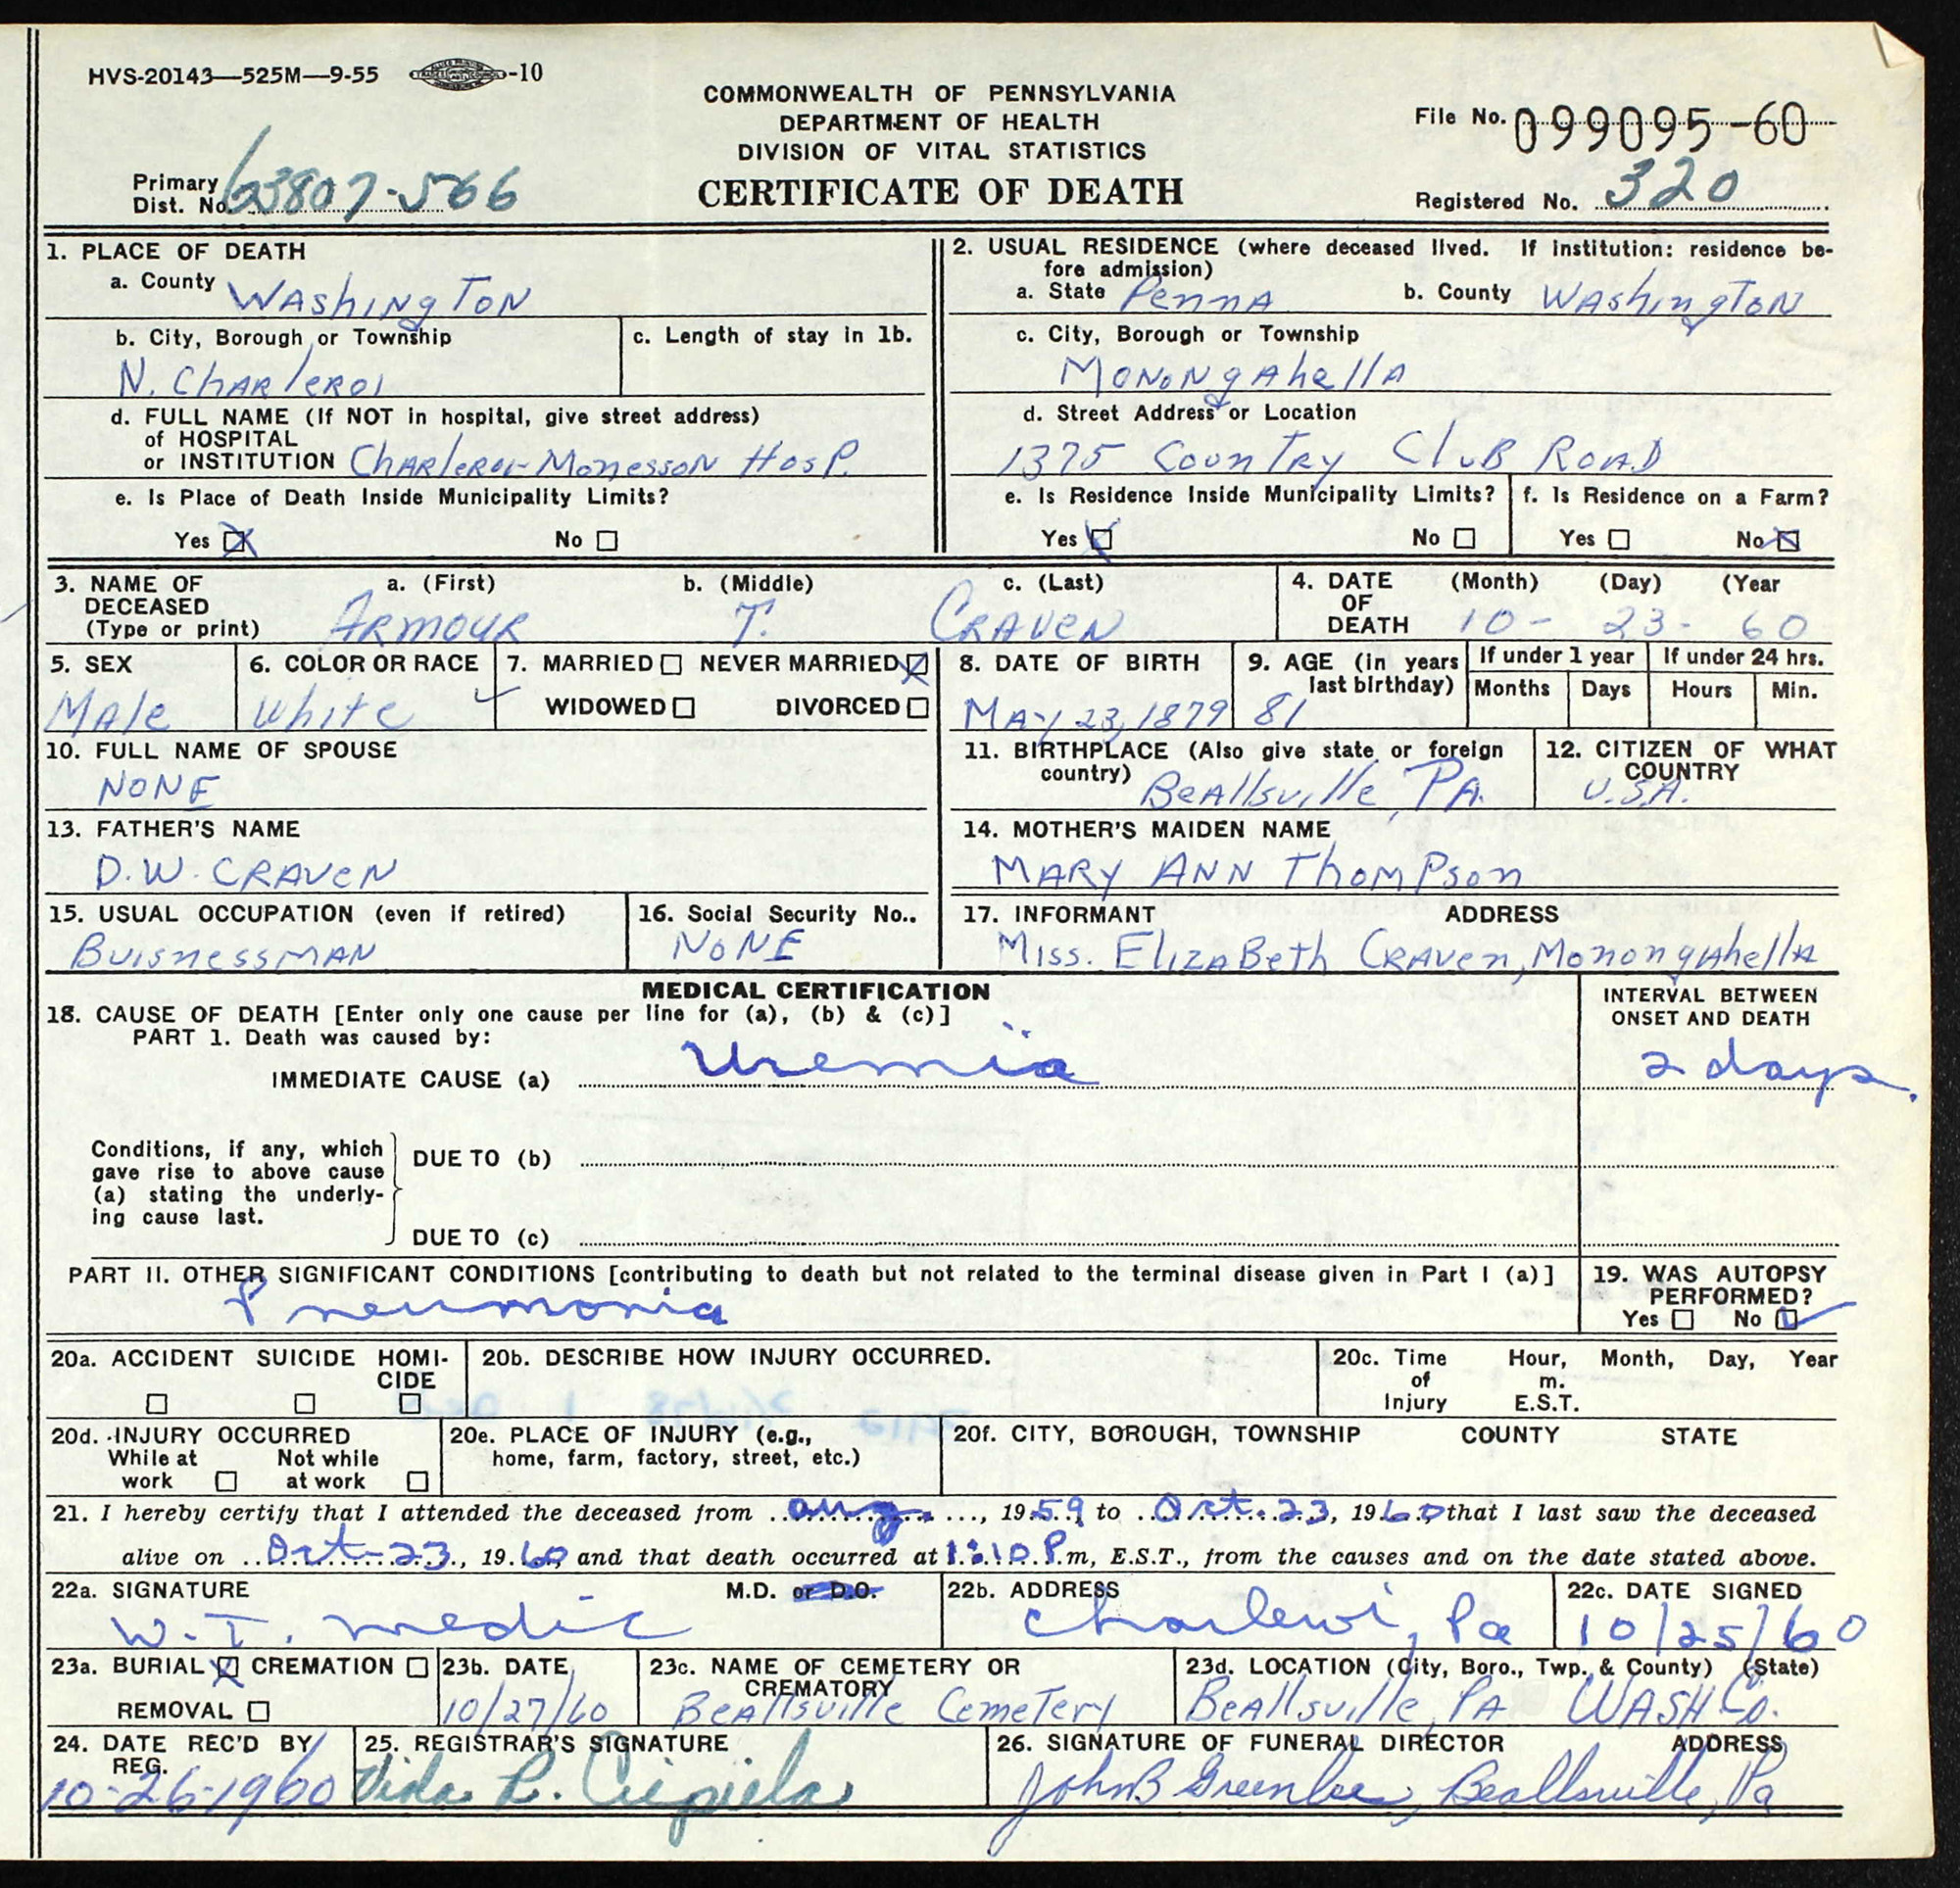 HVS-20143—525M—9-55 -10
COMMONWEALTH OF PENNSYLVANIA
DEPARTMENT OF HEALTH
DIVISION OF VITAL STATISTICS
CERTIFICATE OF DEATH
File No. 099095-60
Primary Dist. No. 63807-566
Registered No. 320
1. PLACE OF DEATH
a. County Washington
b. City, Borough or Township
N. Charleroi
c. Length of stay in 1b.
d. FULL NAME (If NOT in hospital, give street address)
of HOSPITAL
or INSTITUTION Charleroi-Monesson Hosp.
e. Is Place of Death Inside Municipality Limits?
Yes X No
2. USUAL RESIDENCE (where deceased lived. If institution: residence be-
fore admission)
a. State Penna b. County Washington
c. City, Borough or Township
Monongahella
d. Street Address or Location
1375 Country Club Road
e. Is Residence Inside Municipality Limits?
Yes No
f. Is Residence on a Farm?
Yes No X
3. NAME OF a. (First) b. (Middle) c. (Last)
DECEASED
(Type or print) Armour T. Craven
4. DATE (Month) (Day) (Year
OF
DEATH 10- 23- 60
5. SEX
Male
6. COLOR OR RACE
White
7. MARRIED NEVER MARRIED X
WIDOWED DIVORCED
8. DATE OF BIRTH
May 23, 1879
9. AGE (in years
last birthday)
81
If under 1 year
Months Days
If under 24 hrs.
Hours Min.
10. FULL NAME OF SPOUSE
NONE
11. BIRTHPLACE (Also give state or foreign
country) Beallsville, PA.
12. CITIZEN OF WHAT
COUNTRY
U.S.A.
13. FATHER'S NAME
D.W. CRAVEN
14. MOTHER'S MAIDEN NAME
MARY ANN Thompson
15. USUAL OCCUPATION (even if retired)
Buisnessman
16. Social Security No..
NONE
17. INFORMANT ADDRESS
Miss. Elizabeth Craven, Monongahella
MEDICAL CERTIFICATION
18. CAUSE OF DEATH [Enter only one cause per line for (a), (b) & (c)]
PART 1. Death was caused by:
IMMEDIATE CAUSE (a) Uremia
INTERVAL BETWEEN
ONSET AND DEATH
2 days.
Conditions, if any, which
gave rise to above cause
(a) stating the underly-
ing cause last.
DUE TO (b)
DUE TO (c)
PART II. OTHER SIGNIFICANT CONDITIONS [contributing to death but not related to the terminal disease given in Part I (a)]
Pneumonia
19. WAS AUTOPSY
PERFORMED?
Yes No
20a. ACCIDENT SUICIDE HOMI-
CIDE
20b. DESCRIBE HOW INJURY OCCURRED.
20c. Time Hour, Month, Day, Year
of m.
Injury E.S.T.
20d. INJURY OCCURRED
While at Not while
work at work
20e. PLACE OF INJURY (e.g.,
home, farm, factory, street, etc.)
20f. CITY, BOROUGH, TOWNSHIP COUNTY STATE
21. I hereby certify that I attended the deceased from Aug., 1959, to Oct. 23, 1960, that I last saw the deceased
alive on Oct-23, 1960, and that death occurred at 1:10 P.m, E.S.T., from the causes and on the date stated above.
22a. SIGNATURE M.D. or D.O.
W. I. Medic
22b. ADDRESS
Charleroi, Pa
22c. DATE SIGNED
10/25/60
23a. BURIAL X CREMATION
REMOVAL
23b. DATE
10/27/60
23c. NAME OF CEMETERY OR
CREMATORY
Beallsville Cemetery
23d. LOCATION (City, Boro., Twp. & County) (State)
Beallsville, PA WASH. Co.
24. DATE REC'D BY
REG.
10-26-1960
25. REGISTRAR'S SIGNATURE
Vida R. Cipiela
26. SIGNATURE OF FUNERAL DIRECTOR ADDRESS
John B Greenlee, Beallsville, Pa